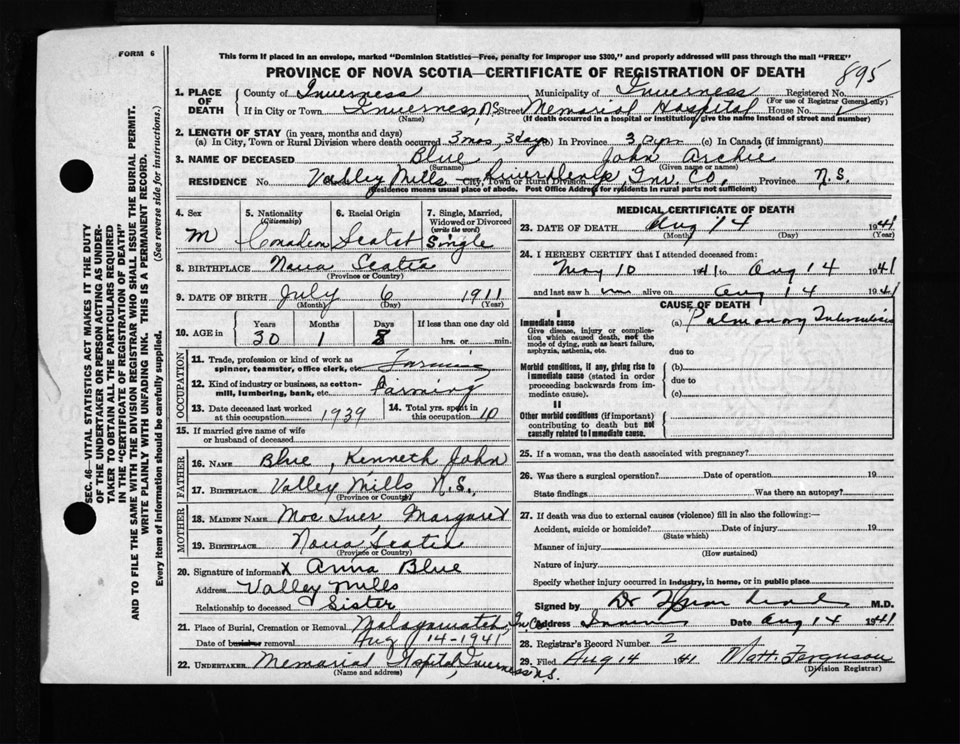 FORM 6
This form if placed in an envelope, marked "Dominion Statistics—Free, penalty for improper use $300," and properly addressed will pass through the mail "FREE"
PROVINCE OF NOVA SCOTIA—CERTIFICATE OF REGISTRATION OF DEATH
895
1. PLACE OF DEATH
County of Inverness Municipality of Inverness Registered No.
(For use of Registrar General only)
If in City or Town Inverness, N.S. Street Memorial Hospital House No.
(Name) (If death occurred in a hospital or institution, give the name instead of street and number)
2. LENGTH OF STAY (in years, months and days)
(a) In City, Town or Rural Division where death occurred 3 mos, 3 days (b) In Province 3 (c) In Canada (if immigrant)
3. NAME OF DECEASED Blue John Archie
(Surname) (Given name or names)
RESIDENCE No. Valley Mills City, Town or Rural Division Inv. Co, Province N.S.
(Residence means usual place of abode. Post Office Address for residents in rural parts not sufficient)
4. Sex
M
5. Nationality
(Citizenship)
6. Racial Origin
7. Single, Married, Widowed or Divorced
(write the word)
Single
8. BIRTHPLACE Nova Scotia
(Province or Country)
9. DATE OF BIRTH July 6 1911
(Month) (Day) (Year)
10. AGE in
Years Months Days If less than one day old
30 1 8 hrs. or min.
OCCUPATION
11. Trade, profession or kind of work as spinner, teamster, office clerk, etc. Farming
12. Kind of industry or business, as cotton-mill, lumbering, bank, etc. Farming
13. Date deceased last worked at this occupation 1939
14. Total yrs. spent in this occupation 10
15. If married give name of wife or husband of deceased
FATHER
16. NAME Blue, Kenneth John
17. BIRTHPLACE Valley Mills N.S.,
(Province or Country)
MOTHER
18. MAIDEN NAME Margaret
19. BIRTHPLACE Nova Scotia
(Province or Country)
20. Signature of informant X Anna Blue
Address Valley Mills
Relationship to deceased Sister
21. Place of Burial, Cremation or Removal Malagawatch, In. Co.
Date of burial or removal Aug 14-1941
22. UNDERTAKER Memorial Hospital, Inverness N.S.
(Name and address)
MEDICAL CERTIFICATE OF DEATH
23. DATE OF DEATH Aug 14 1941
(Month) (Day) (Year)
24. I HEREBY CERTIFY that I attended deceased from:
May 10 1941 to Aug 14 1941
and last saw h im alive on Aug 14 1941
CAUSE OF DEATH
I
Immediate cause
Give disease, injury or complication which caused death, not the mode of dying, such as heart failure, asphyxia, asthenia, etc.
(a) Pulmonary Tuberculosis
due to
Morbid conditions, if any, giving rise to immediate cause (stated in order proceeding backwards from immediate cause).
(b)
due to
(c)
II
Other morbid conditions (if important) contributing to death but not causally related to immediate cause.
25. If a woman, was the death associated with pregnancy?
26. Was there a surgical operation? Date of operation 19
State findings Was there an autopsy?
27. If death was due to external causes (violence) fill in also the following:—
Accident, suicide or homicide? Date of injury 19
(State which)
Manner of injury
(How sustained)
Nature of injury
Specify whether injury occurred in industry, in home, or in public place
Signed by Dr M.D.
Address Date Aug 14 1941
28. Registrar's Record Number 2
29. Filed Aug 14 1941 Matt. Ferguson
(Division Registrar)
SEC. 46—VITAL STATISTICS ACT MAKES IT THE DUTY
OF THE UNDERTAKER OR PERSON ACTING AS UNDERTAKER
TO OBTAIN ALL THE PARTICULARS REQUIRED
IN THE "CERTIFICATE OF REGISTRATION OF DEATH"
AND TO FILE THE SAME WITH THE DIVISION REGISTRAR WHO SHALL ISSUE THE BURIAL PERMIT.
WRITE PLAINLY WITH UNFADING INK. THIS IS A PERMANENT RECORD.
Every item of information should be carefully supplied. (See reverse side for instructions.)